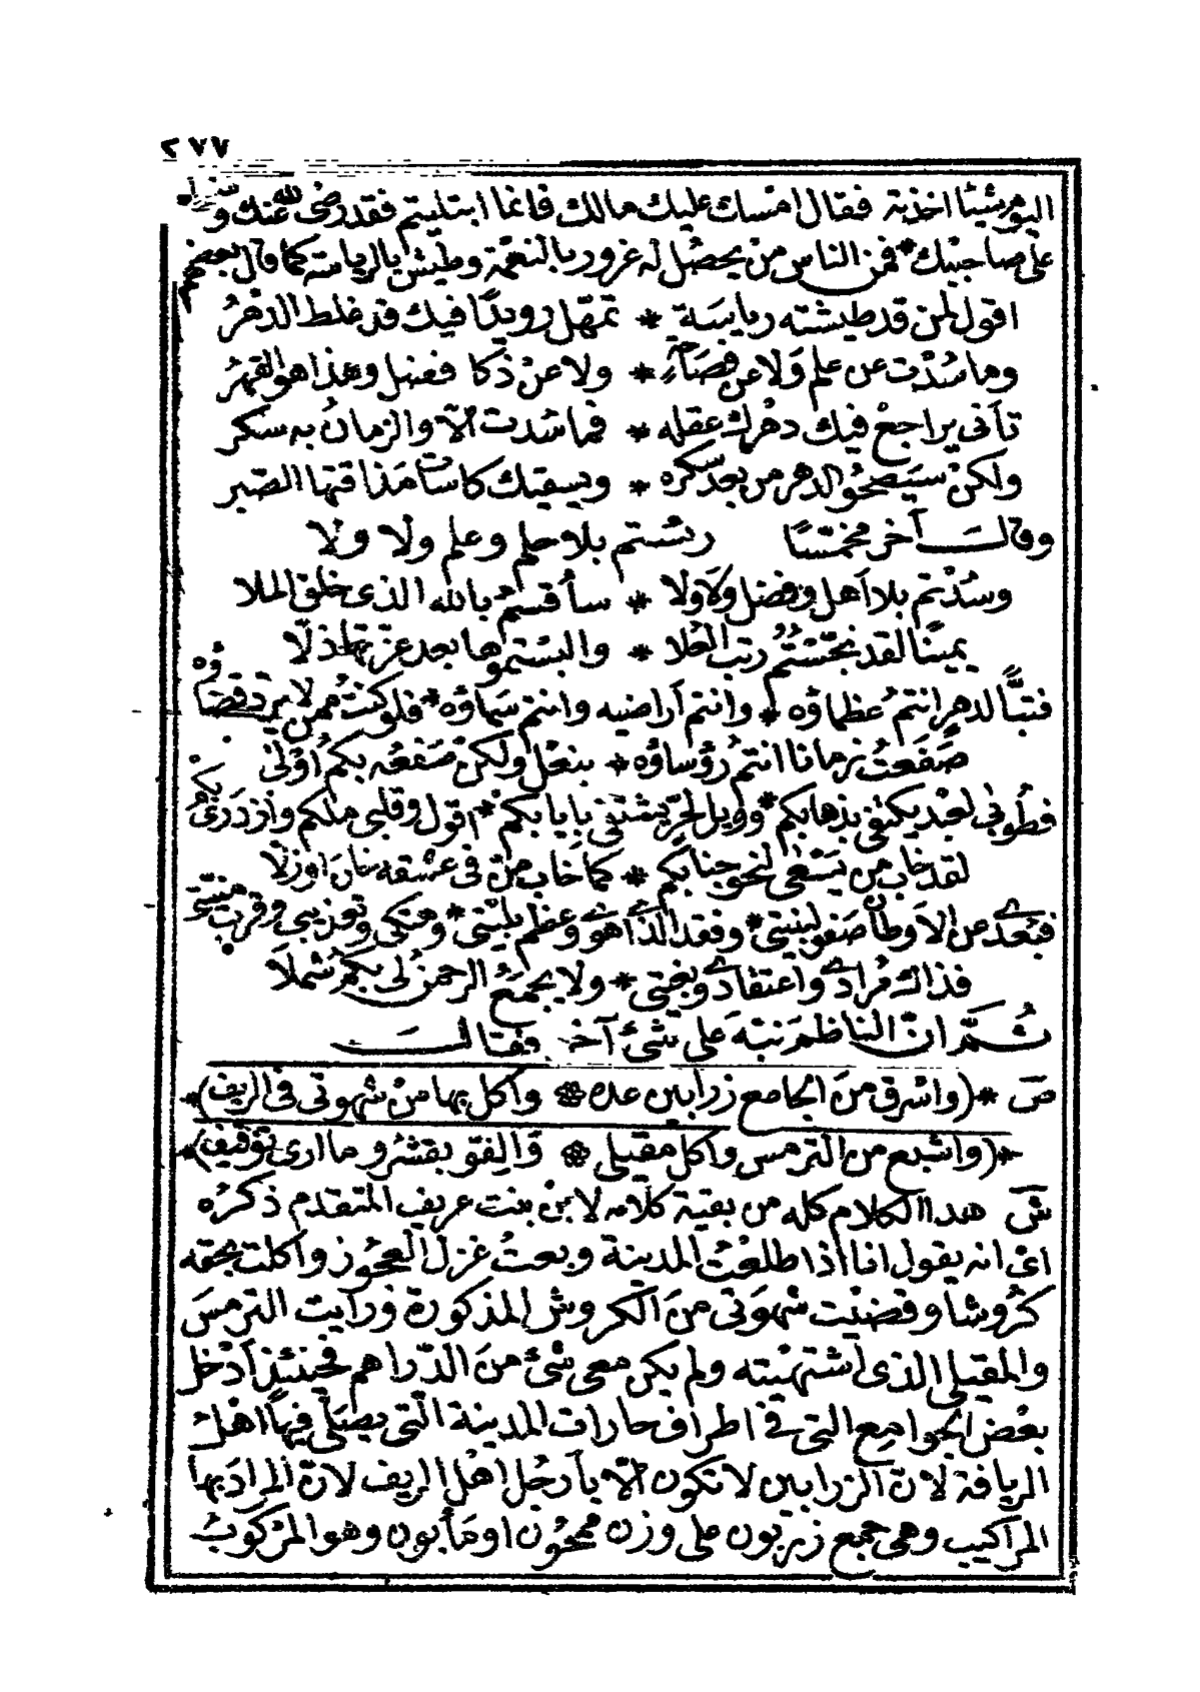 ٢٧٧
اليوم شيئا اخذته فقال امسك عليك مالك فانما ابتليتم فقد رضى الله عنك وسخط
على صاحبيك * فمن الناس من يحصل له غرور بالنعمة وطيش بالرياسة كما قال بعضهم
اقول لمن قد طيشته رياسة * تمهّل رويدًا فيك قد غلط الدهرُ
وما سُدْت عن علم وَلا عن فصَاحة * ولا عن ذكا فضل وهذا هو القهرُ
تأنى يراجعْ فيك دهرك عقله * فما سُدت الّا والزمانُ به سكر
ولكنْ سَيَصْحُو الدهر من بعد سكره * ويسقيك كاسَات مَذاقتها الصّبر
وقالــ آخر مخمّسًا ريستم بلا حلم وعلم ولا ولا
وسُدْتم بلا اَهل وفضل ولا ولا * سأقسمُ بالله الذى خلق الملا
يمينًا لقد نجّستمُ رتب العُلا * والبستموها بعد عزّتها ذلّا
فتبًّا لدهر انتمُ عظماؤه * وانتم اَراضيه وانتم سَماؤه * فلو كنتُ ممن لا يردّ قضاؤه
صَفَعتُ زمانا انتمُ رؤساؤه * بنعل ولكنْ صَفعُه بكمُ اوْلى
فطُوبىٰ لعَبد يكتفى بذهابكم * وويل لحرّ يشتفى بِايابكم * اقول وقلبى ملكم وازدَرىٰ بكم
لقد خاب من يَسْعى لنحو جنابكم * كما خاب من فى عشقه نانَ اوزلّا
فبُعْدى من الاَوطان صَفو لبنيتى * وفقد الذى اهوى وعظم بليّتى * وهتكى وتعذيبى وقرب منيّتى
فذاك مُرادى واعتقادى وبغيتى * ولا يجمعُ الرحمنُ لى بكمُ شملَا
ثُـمَّ انّ الناظم نبّهَ على شئ آخر فقـالــ
صَ *(واسْرق منَ الجامع زرابين عده * وآكل بها منْ شهوتى فى الريف)*
*(واشبع من الترمس وآكل مقيلى * وَالِفّو بقشرو ما ارى توقيف)*
شَ هدا الكلام كله من بقية كلامه لابنْ بنت عريف المتقدم ذكرُه
اىْ انه يقول انا اذا طلعْتُ المدينة وبعتُ غزل العجُوز واكلت بحقه
كُروشا وقضيْت شهوَتى منَ الكروش المذكورة ورَايت الترمسَ
والمقيلى الذى اشتهيته ولم يكن معى شئ منَ الدّراهم فحينئذ اَدْخل
بعْض الجوامع التى فى اطراف حارات المدينة التّى يصَلّى فيهاَ اهْلُ
الريافة لانّ الزرابين لا تكون الّا بأرجُل اهْل الريف لانّ المرادَ بها
المراكيب وهى جمع زربون على وزن ممحُون او مَأبون وهو المرْكوبُ